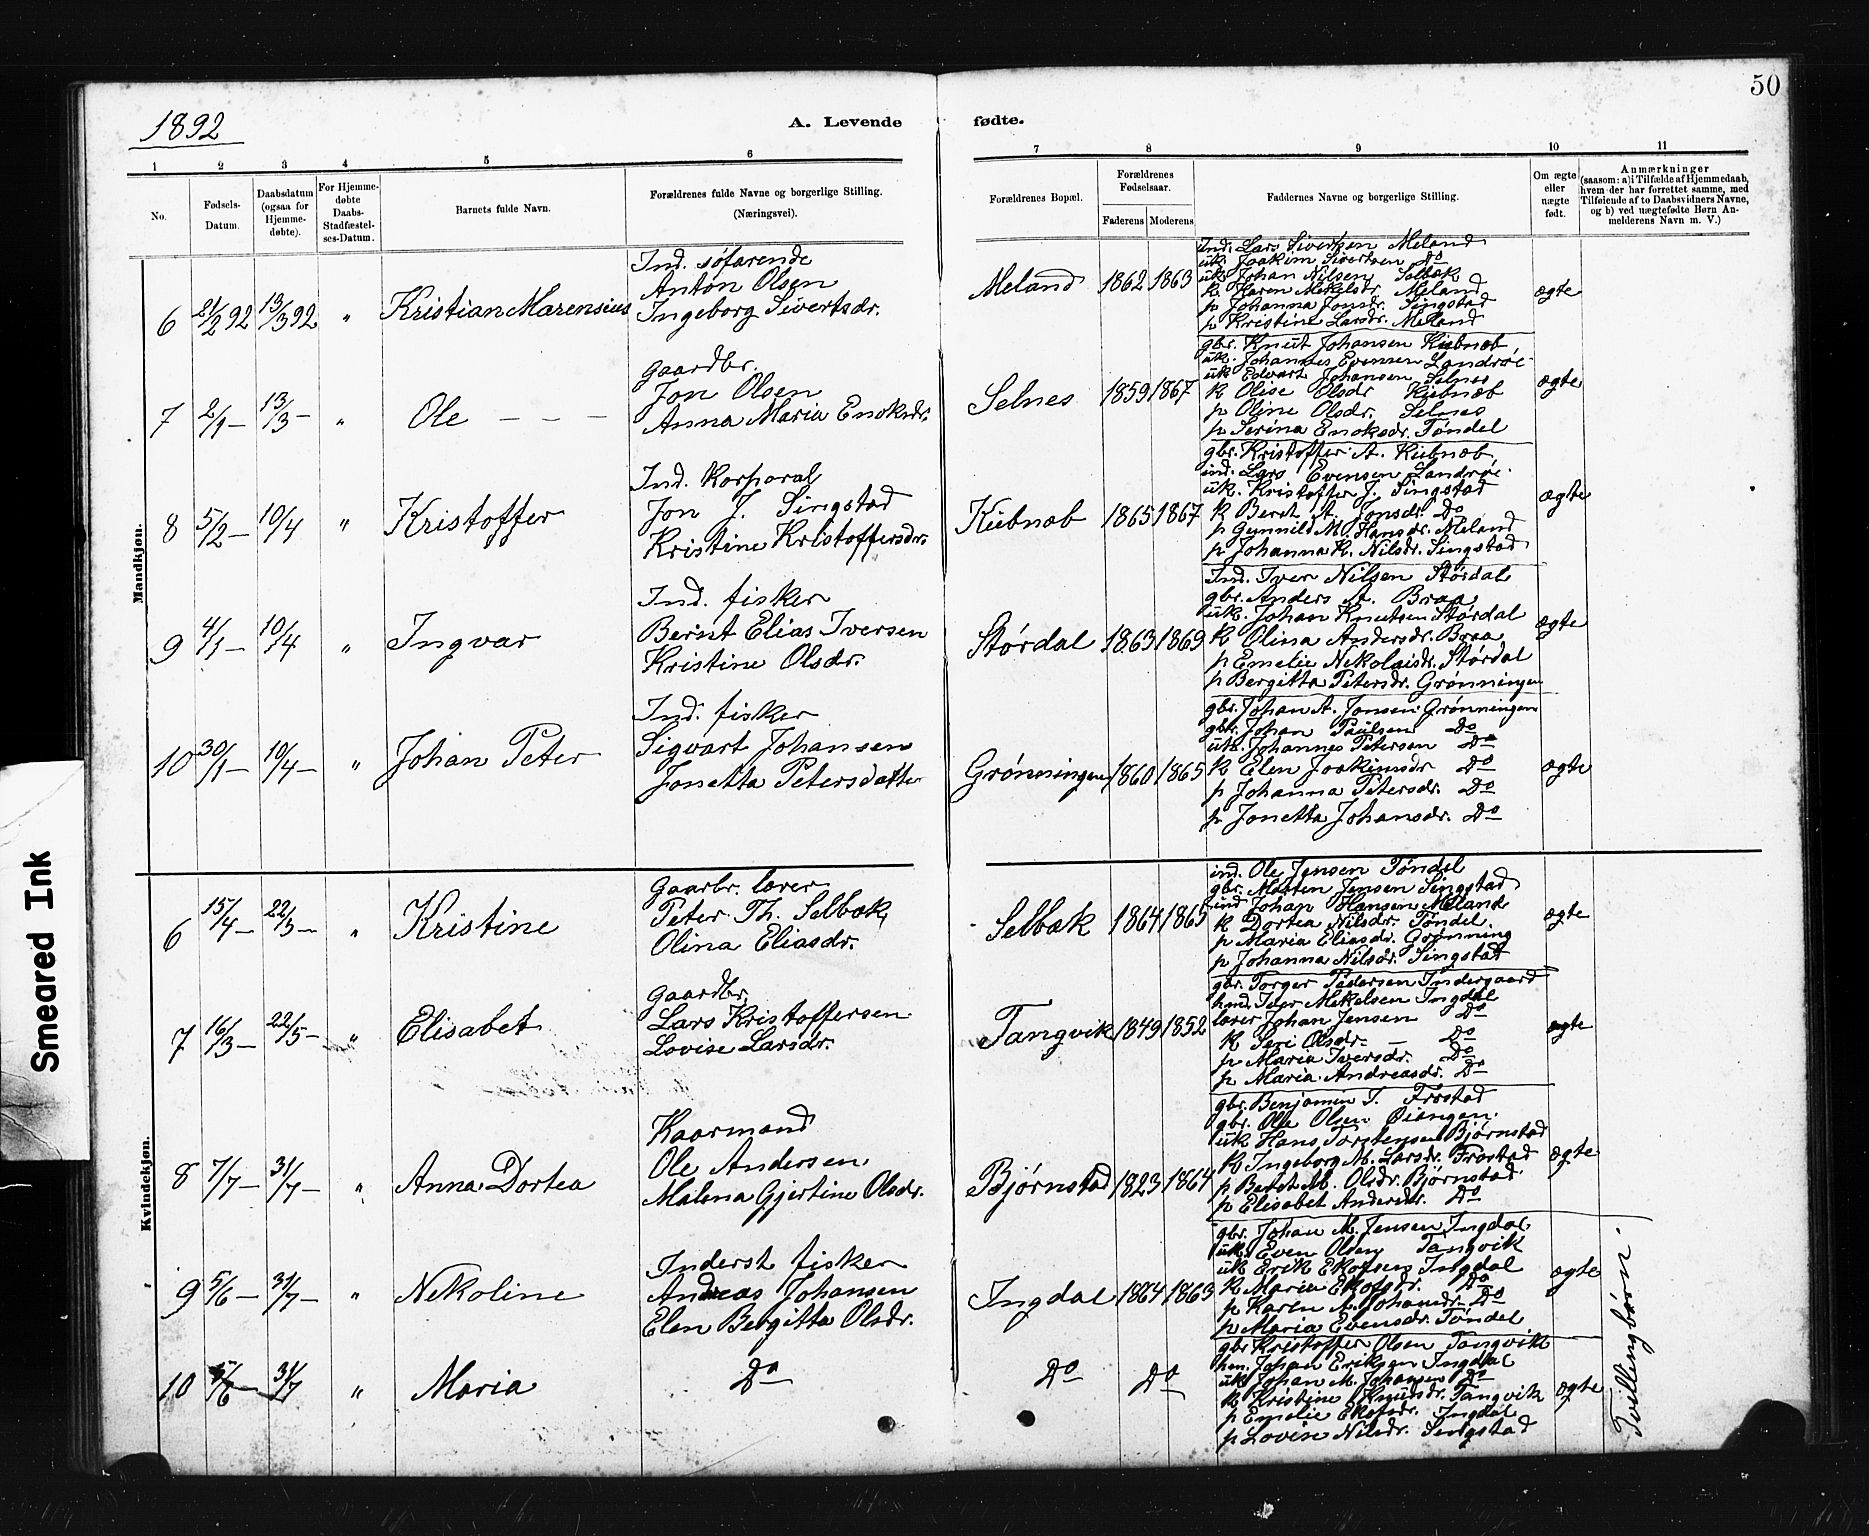 50
1892
A. Levende fødte.
1 2 3 4 5 6 7 8 9 10 11
No.
Fødsels-Datum.
Daabsdatum (ogsaa for Hjemme-døbte).
For Hjemme-døbte Daabs-Stadfæstel-ses-Datum.
Barnets fulde Navn.
Forældrenes fulde Navne og borgerlige Stilling. (Næringsvei).
Forældrenes Bopæl.
Forældrenes Fødselsaar.
Faderens Moderens
Faddernes Navne og borgerlige Stilling.
Om ægte eller uægte født.
Anmærkninger
(saasom: a) i Tilfælde af Hjemmedaab, hvem der har forrettet samme, med Tilføiende af to Daabsvidners Navne, og b) ved uægtefødte Børn An-melderens Navn m. V.)
Mandkjøn.
6 21/2 92 13/3 92 " Kristian Marensius
Ind. søfarende
Anton Olsen
Ingeborg Sivertsdr.
Meland 1862 1863
Ind. Lars Sivertsen Meland
uk. Joakim Sivertsen Do
uk. Johan Nilsen Selbæk
k Karen Mekelsdr. Meland
p Johanna Jonsdr. Singstad
p Kristine Larsdr. Meland
ægte
7 2/1 – 13/3 – " Ole – – –
Gaardbr.
Jon Olsen
Anna Maria Enoksdr.
Selnes 1859 1867
gbr. Knut Johansen Kubnæb
uk. Johannes Evensen Landrøe
uk Edvart Johansen Selnes
k Olise Olsdr Kubnæb
p Oline Olsdr. Selnes
p Serina Enoksdr. Tøndel
ægte
8 5/2 – 10/4 " Kristoffer
Ind. Korporal
Jon J. Singstad
Kristine Kristoffersdr.
Kubnæb 1865 1867
gbr. Kristoffer A. Kubnæb
ind. Lars Evensen Landrøe
uk. Kristoffer J. Singstad
k Beret A. Jonsdr. Do
p Gunnild M. Hansdr. Meland
p Johanna K. Nilsdr. Singstad
ægte
9 4/1 – 10/4 " Ingvar
Ind. fisker
Bernt Elias Iversen
Kristine Olsdr.
Størdal 1863 1869
Ind. Iver Nilsen Størdal
gbr. Anders A. Braa
uk. Johan Knutsen Størdal
k Olina Andersdr. Braa
p Emelie Nekolaisdr. Størdal
p Bergitta Petersdr. Grønningen
ægte
10 30/1 – 10/4 – " Johan Peter
Ind. fisker
Sigvart Johansen
Jonetta Petersdatter
Grønningen 1860 1865
gbr. Johan A. Jonsen Grønningen
gbr. Johan Paulsen Do
uk. Johannes Petersen Do
k Elen Joakimsdr Do
p Johanna Petersdr. Do
p Jonetta Johansdr. Do
ægte
Kvindekjøn.
6 15/4 – 22/5 – " Kristine
Gaarbr. lærer
Peter Th. Selbæk
Olina Eliasdr.
Selbæk 1864 1865
ind. Ole Jensen Tøndel
gbr. Morten Jensen Singstad
ind Johan Hansen Meland
k Dortea Nilsdr. Tøndel.
p Maria Eliasdr. Grønning
p Johanna Nilsdr. Singstad
ægte
7 16/3 – 22/5 – " Elisabet
Gaardbr.
Lars Kristoffersen
Lovise Larsdr.
Tangvik 1849 1852
gbr. Torger Pedersen Indergaard
Peter Mekelsen Ingdal
lærer Johan Jensen Do
k Seri Olsdr. – Do
p Maria Iversdr. Do
p Maria Andreasdr. Do
ægte
8 7/7 – 31/7 – " Anna Dortea
Kaarmand
Ole Andersen
Malena Gjertine Olsdr.
Bjørnstad 1823 1864
gbr. Benjamin T. Frostad
gbr. Ole Olsen Øiangen.
uk Hans Torstensen Bjørnstad
k Ingeborg M. Larsdr. Frostad
p Beret M. Olsdr. Bjørnstad
p Elisabet Andersdr. Do
ægte
9 5/6 – 31/7 – " Nekoline
Inderst fisker
Andreas Johansen
Elen Bergitta Olsdr.
Ingdal 1864 1863
gbr. Johan M. Jensen Ingdal
uk. Even Olsen Tangvik
uk Erik Ekofsen Ingdal
k Maria Ekofsdr. Do
p Karen M. Johansdr. Do
p Maria Evensdr. Tøndel
ægte
10 5/6 31/7 " Maria
Do
Do Do
gbr Kristoffer Olsen Tangvik
Johan Eriksen Ingdal
uk Johan M. Johansen Do
k Kristine Knutsdr. Tangvik
p Emelie Ekofsdr. Ingdal
p Lovise Nilsdr. Singstad
ægte
Tvillingbørn.
Smeared Ink